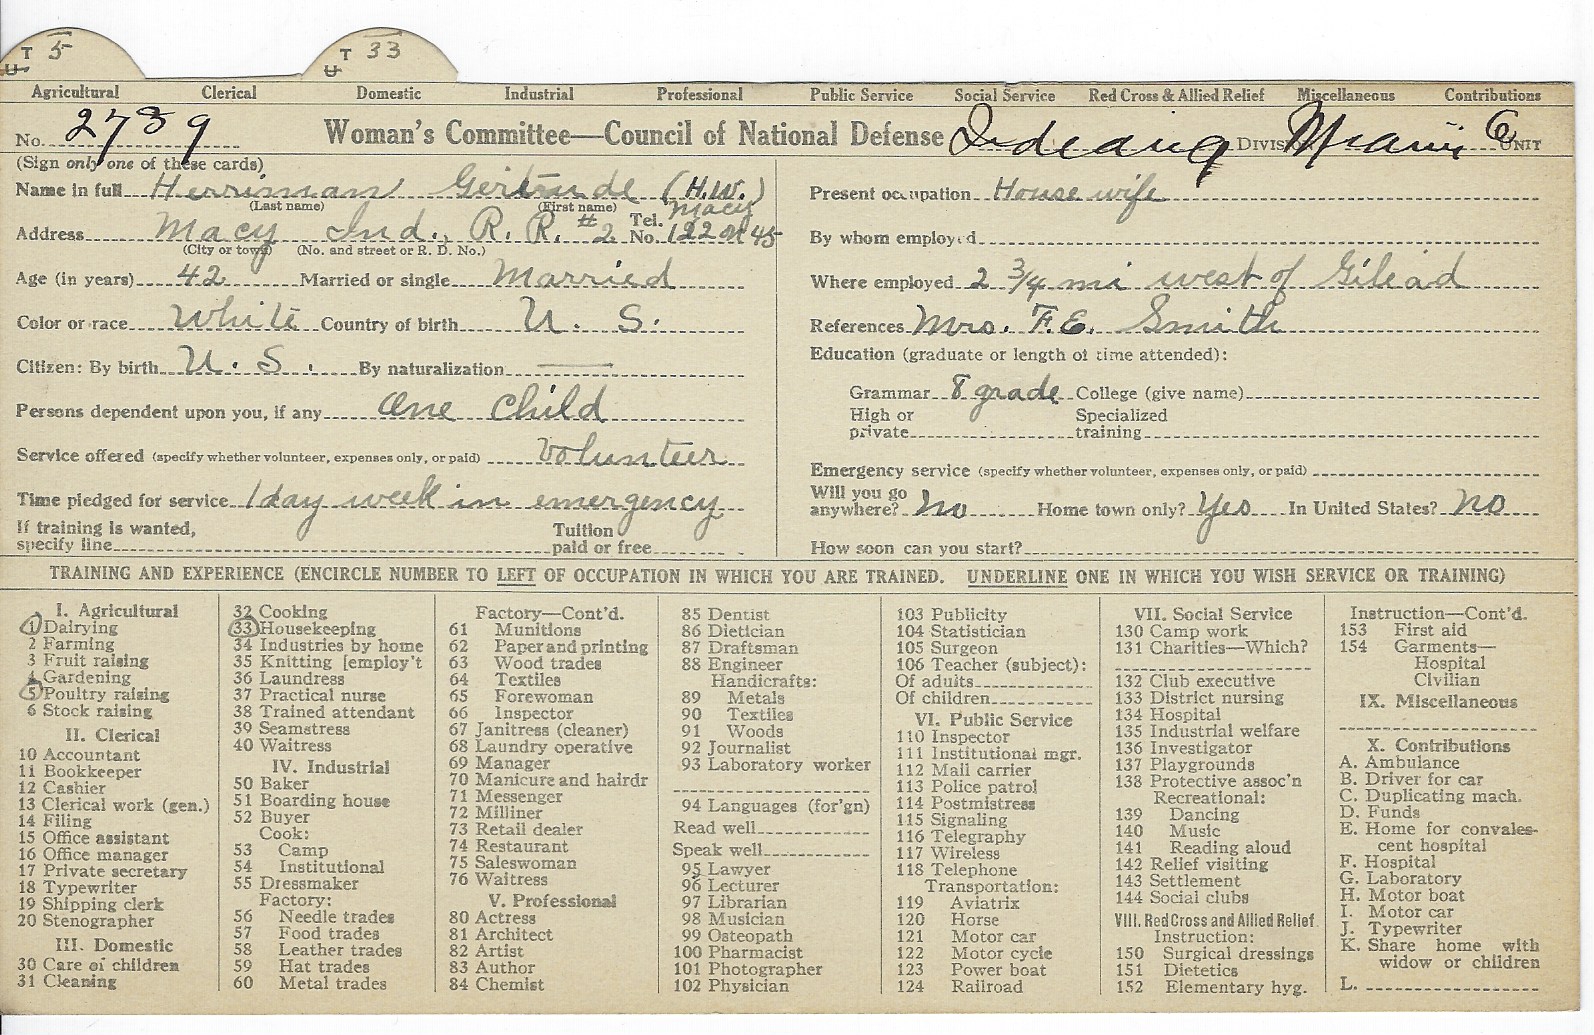 T 5 T 33
U U
Agricultural Clerical Domestic Industrial Professional Public Service Social Service Red Cross & Allied Relief Miscellaneous Contributions
No. 2739 Woman's Committee—Council of National Defense Indiana Division Miami 6 Unit
(Sign only one of these cards)
Name in full Herriman Gertrude (H.W.)
(Last name) (First name)
Address Macy Ind., R. R. #2 Tel. No. Macy 122 on 45
(City or town) (No. and street or R. D. No.)
Age (in years) 42 Married or single Married
Color or race White Country of birth U. S.
Citizen: By birth U. S. By naturalization ——
Persons dependent upon you, if any One Child
Service offered (specify whether volunteer, expenses only, or paid) Volunteer
Time pledged for service 1 day week in emergency
If training is wanted, Tuition
specify line paid or free
Present occupation House wife
By whom employed
Where employed 2 3/4 mi west of Gilead
References Mrs. F.E. Smith
Education (graduate or length of time attended):
Grammar 8 grade College (give name)
High or Specialized
private training
Emergency service (specify whether volunteer, expenses only, or paid)
Will you go
anywhere? No Home town only? Yes In United States? No
How soon can you start?
TRAINING AND EXPERIENCE (ENCIRCLE NUMBER TO LEFT OF OCCUPATION IN WHICH YOU ARE TRAINED. UNDERLINE ONE IN WHICH YOU WISH SERVICE OR TRAINING)
I. Agricultural
1 Dairying
2 Farming
3 Fruit raising
4 Gardening
5 Poultry raising
6 Stock raising
II. Clerical
10 Accountant
11 Bookkeeper
12 Cashier
13 Clerical work (gen.)
14 Filing
15 Office assistant
16 Office manager
17 Private secretary
18 Typewriter
19 Shipping clerk
20 Stenographer
III. Domestic
30 Care of children
31 Cleaning
32 Cooking
33 Housekeeping
34 Industries by home
35 Knitting [employ't
36 Laundress
37 Practical nurse
38 Trained attendant
39 Seamstress
40 Waitress
IV. Industrial
50 Baker
51 Boarding house
52 Buyer
Cook:
53 Camp
54 Institutional
55 Dressmaker
Factory:
56 Needle trades
57 Food trades
58 Leather trades
59 Hat trades
60 Metal trades
Factory—Cont'd.
61 Munitions
62 Paper and printing
63 Wood trades
64 Textiles
65 Forewoman
66 Inspector
67 Janitress (cleaner)
68 Laundry operative
69 Manager
70 Manicure and hairdr
71 Messenger
72 Milliner
73 Retail dealer
74 Restaurant
75 Saleswoman
76 Waitress
V. Professional
80 Actress
81 Architect
82 Artist
83 Author
84 Chemist
85 Dentist
86 Dietician
87 Draftsman
88 Engineer
Handicrafts:
89 Metals
90 Textiles
91 Woods
92 Journalist
93 Laboratory worker
94 Languages (for'gn)
Read well
Speak well
95 Lawyer
96 Lecturer
97 Librarian
98 Musician
99 Osteopath
100 Pharmacist
101 Photographer
102 Physician
103 Publicity
104 Statistician
105 Surgeon
106 Teacher (subject):
Of adults
Of children
VI. Public Service
110 Inspector
111 Institutional mgr.
112 Mail carrier
113 Police patrol
114 Postmistress
115 Signaling
116 Telegraphy
117 Wireless
118 Telephone
Transportation:
119 Aviatrix
120 Horse
121 Motor car
122 Motor cycle
123 Power boat
124 Railroad
VII. Social Service
130 Camp work
131 Charities—Which?
132 Club executive
133 District nursing
134 Hospital
135 Industrial welfare
136 Investigator
137 Playgrounds
138 Protective assoc'n
Recreational:
139 Dancing
140 Music
141 Reading aloud
142 Relief visiting
143 Settlement
144 Social clubs
VIII. Red Cross and Allied Relief
Instruction:
150 Surgical dressings
151 Dietetics
152 Elementary hyg.
Instruction—Cont'd.
153 First aid
154 Garments—
Hospital
Civilian
IX. Miscellaneous
X. Contributions
A. Ambulance
B. Driver for car
C. Duplicating mach.
D. Funds
E. Home for convales-
cent hospital
F. Hospital
G. Laboratory
H. Motor boat
I. Motor car
J. Typewriter
K. Share home with
widow or children
L.